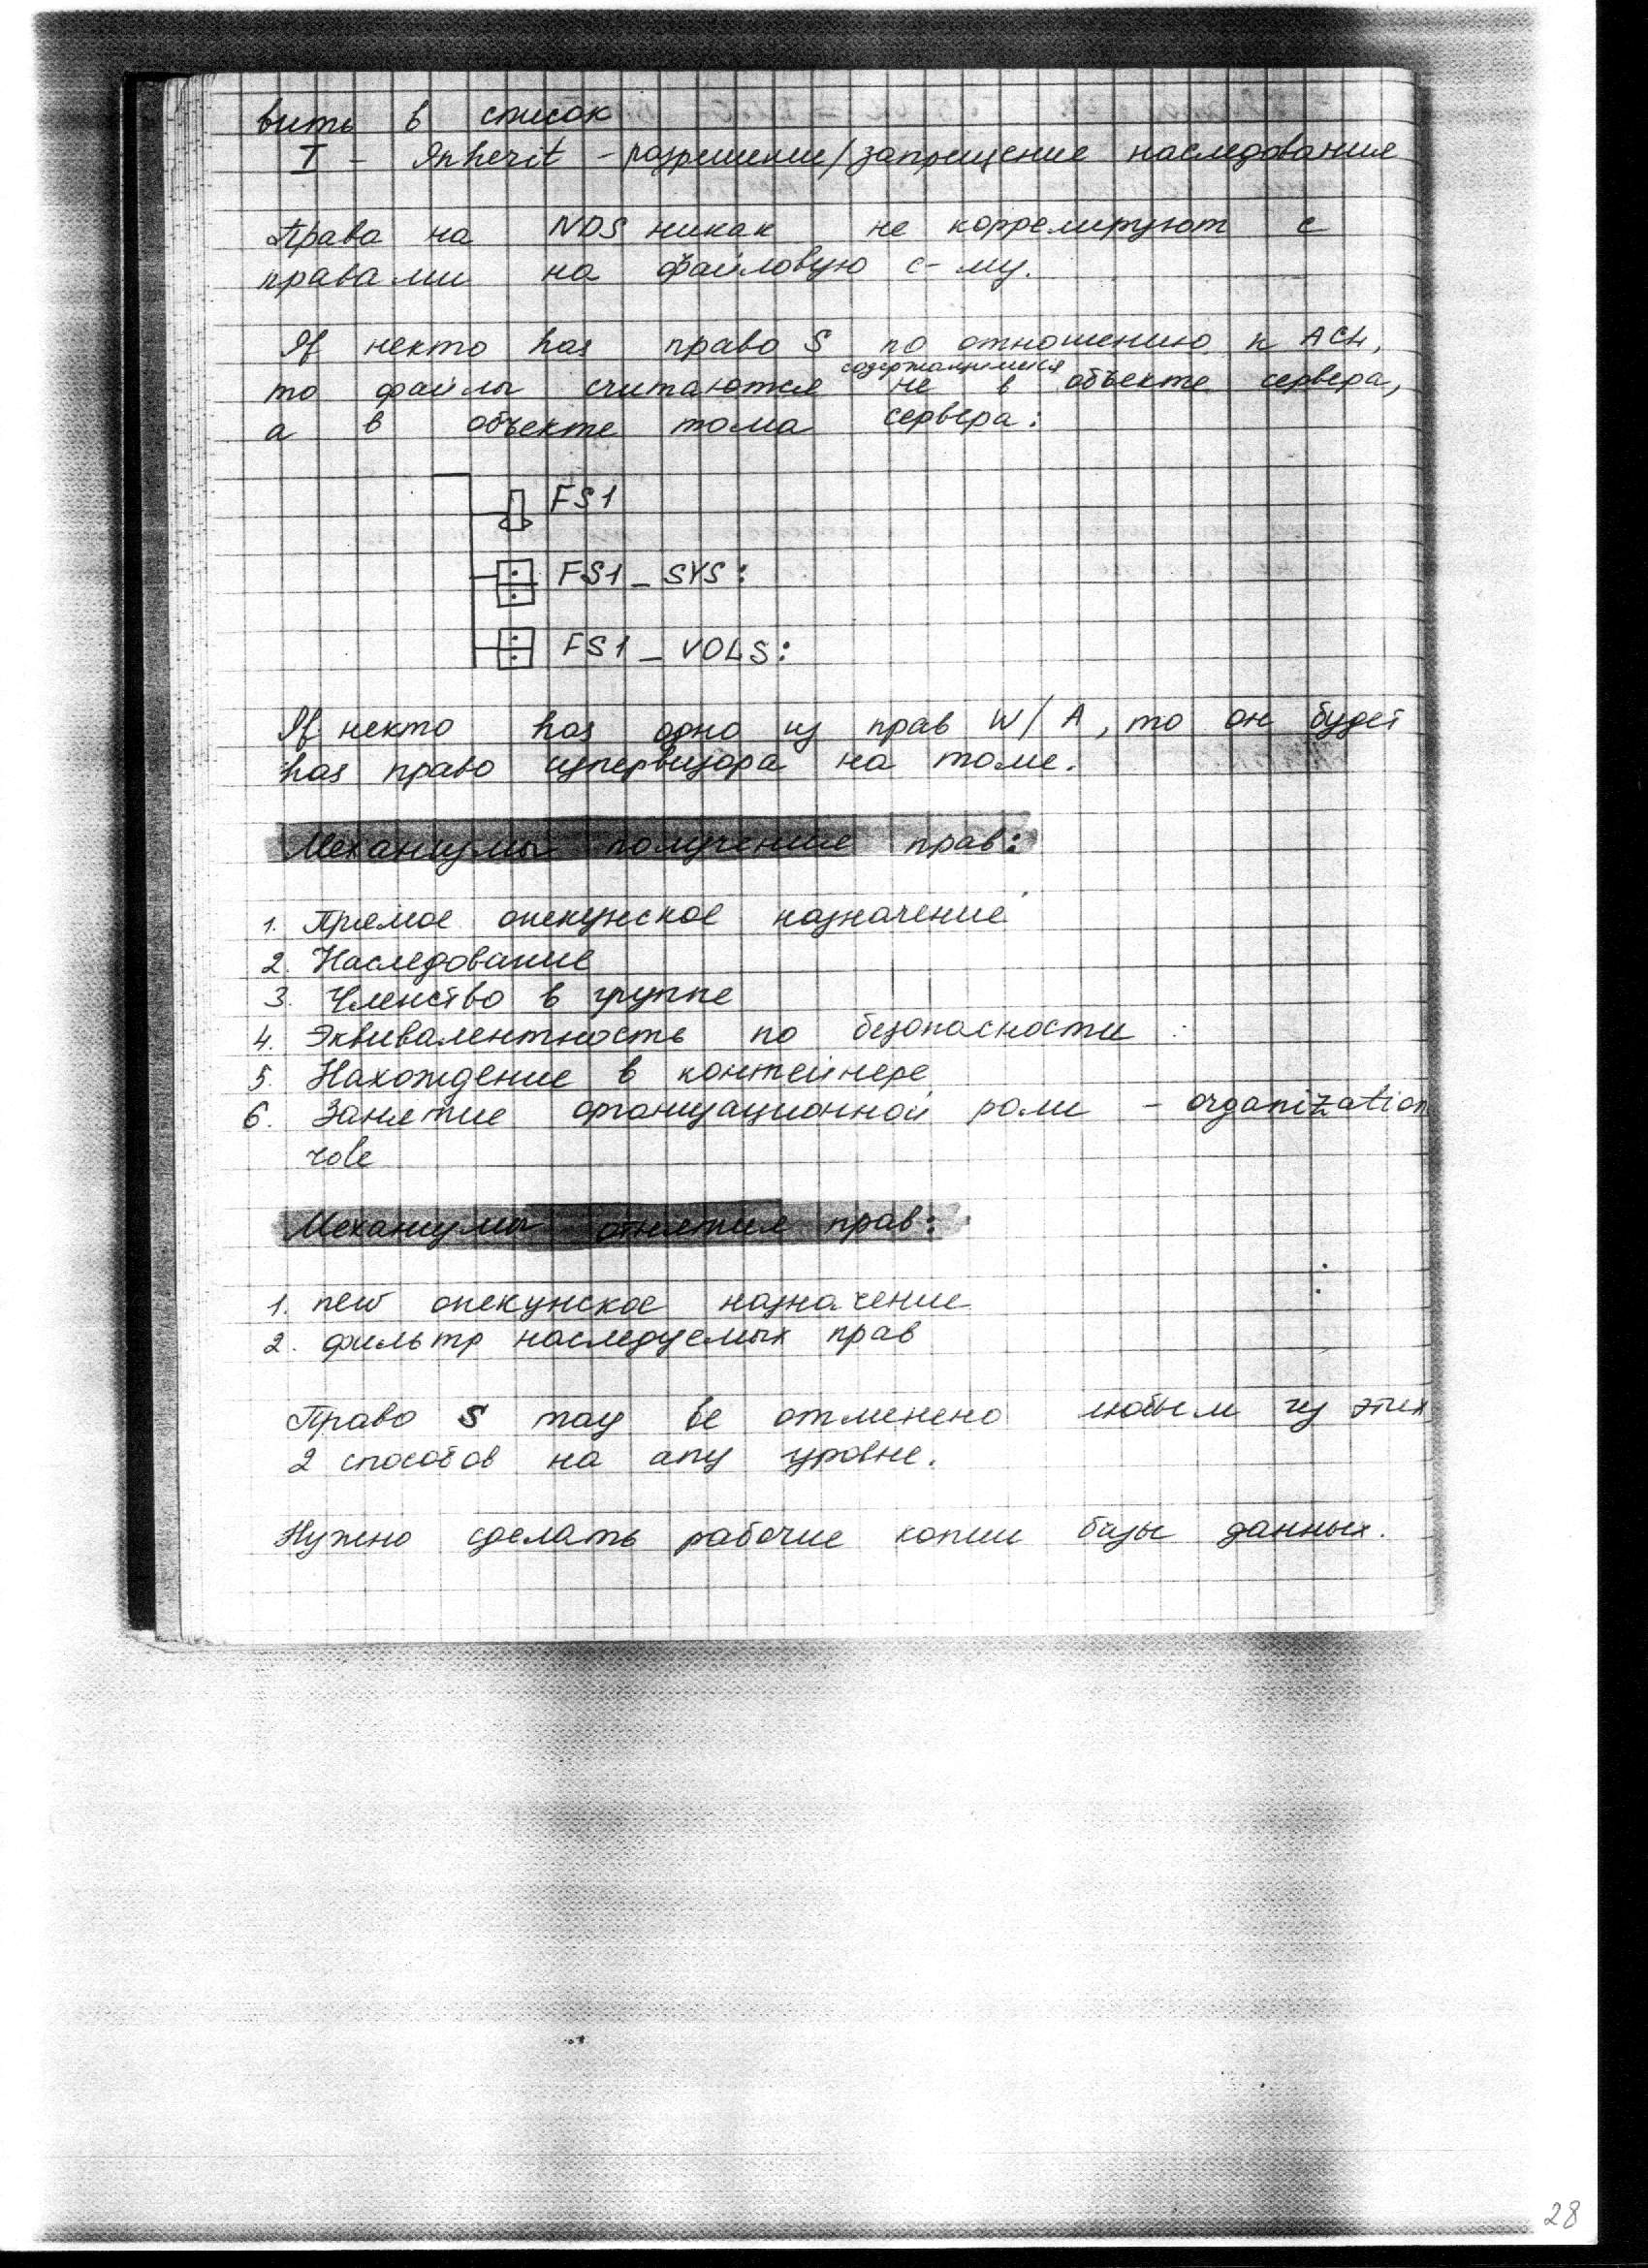 вить в список
I - Inherit - разрешение/запрещение наследования
Права на NDS никак не коррелируют с
правами на файловую с-му.
If некто has право S по отношению к ACL,
содержащимися
то файлы считаются не в объекте сервера,
а в объекте тома сервера:
FS1
FS1_SYS:
FS1_VOLS:
If некто has одно из прав W/A, то он будет
has право супервизора на томе.
Механизмы получения прав:
1. Прямое опекунское назначение
2. Наследование
3. Членство в группе
4. Эквивалентность по безопасности
5. Нахождение в контейнере
6. Занятие организационной роли - organization
role
Механизмы отнятия прав:
1. new опекунское назначение
2. фильтр наследуемых прав
Право S may be отменено любым из этих
2 способов на any уровне.
Нужно сделать рабочие копии базы данных.
28